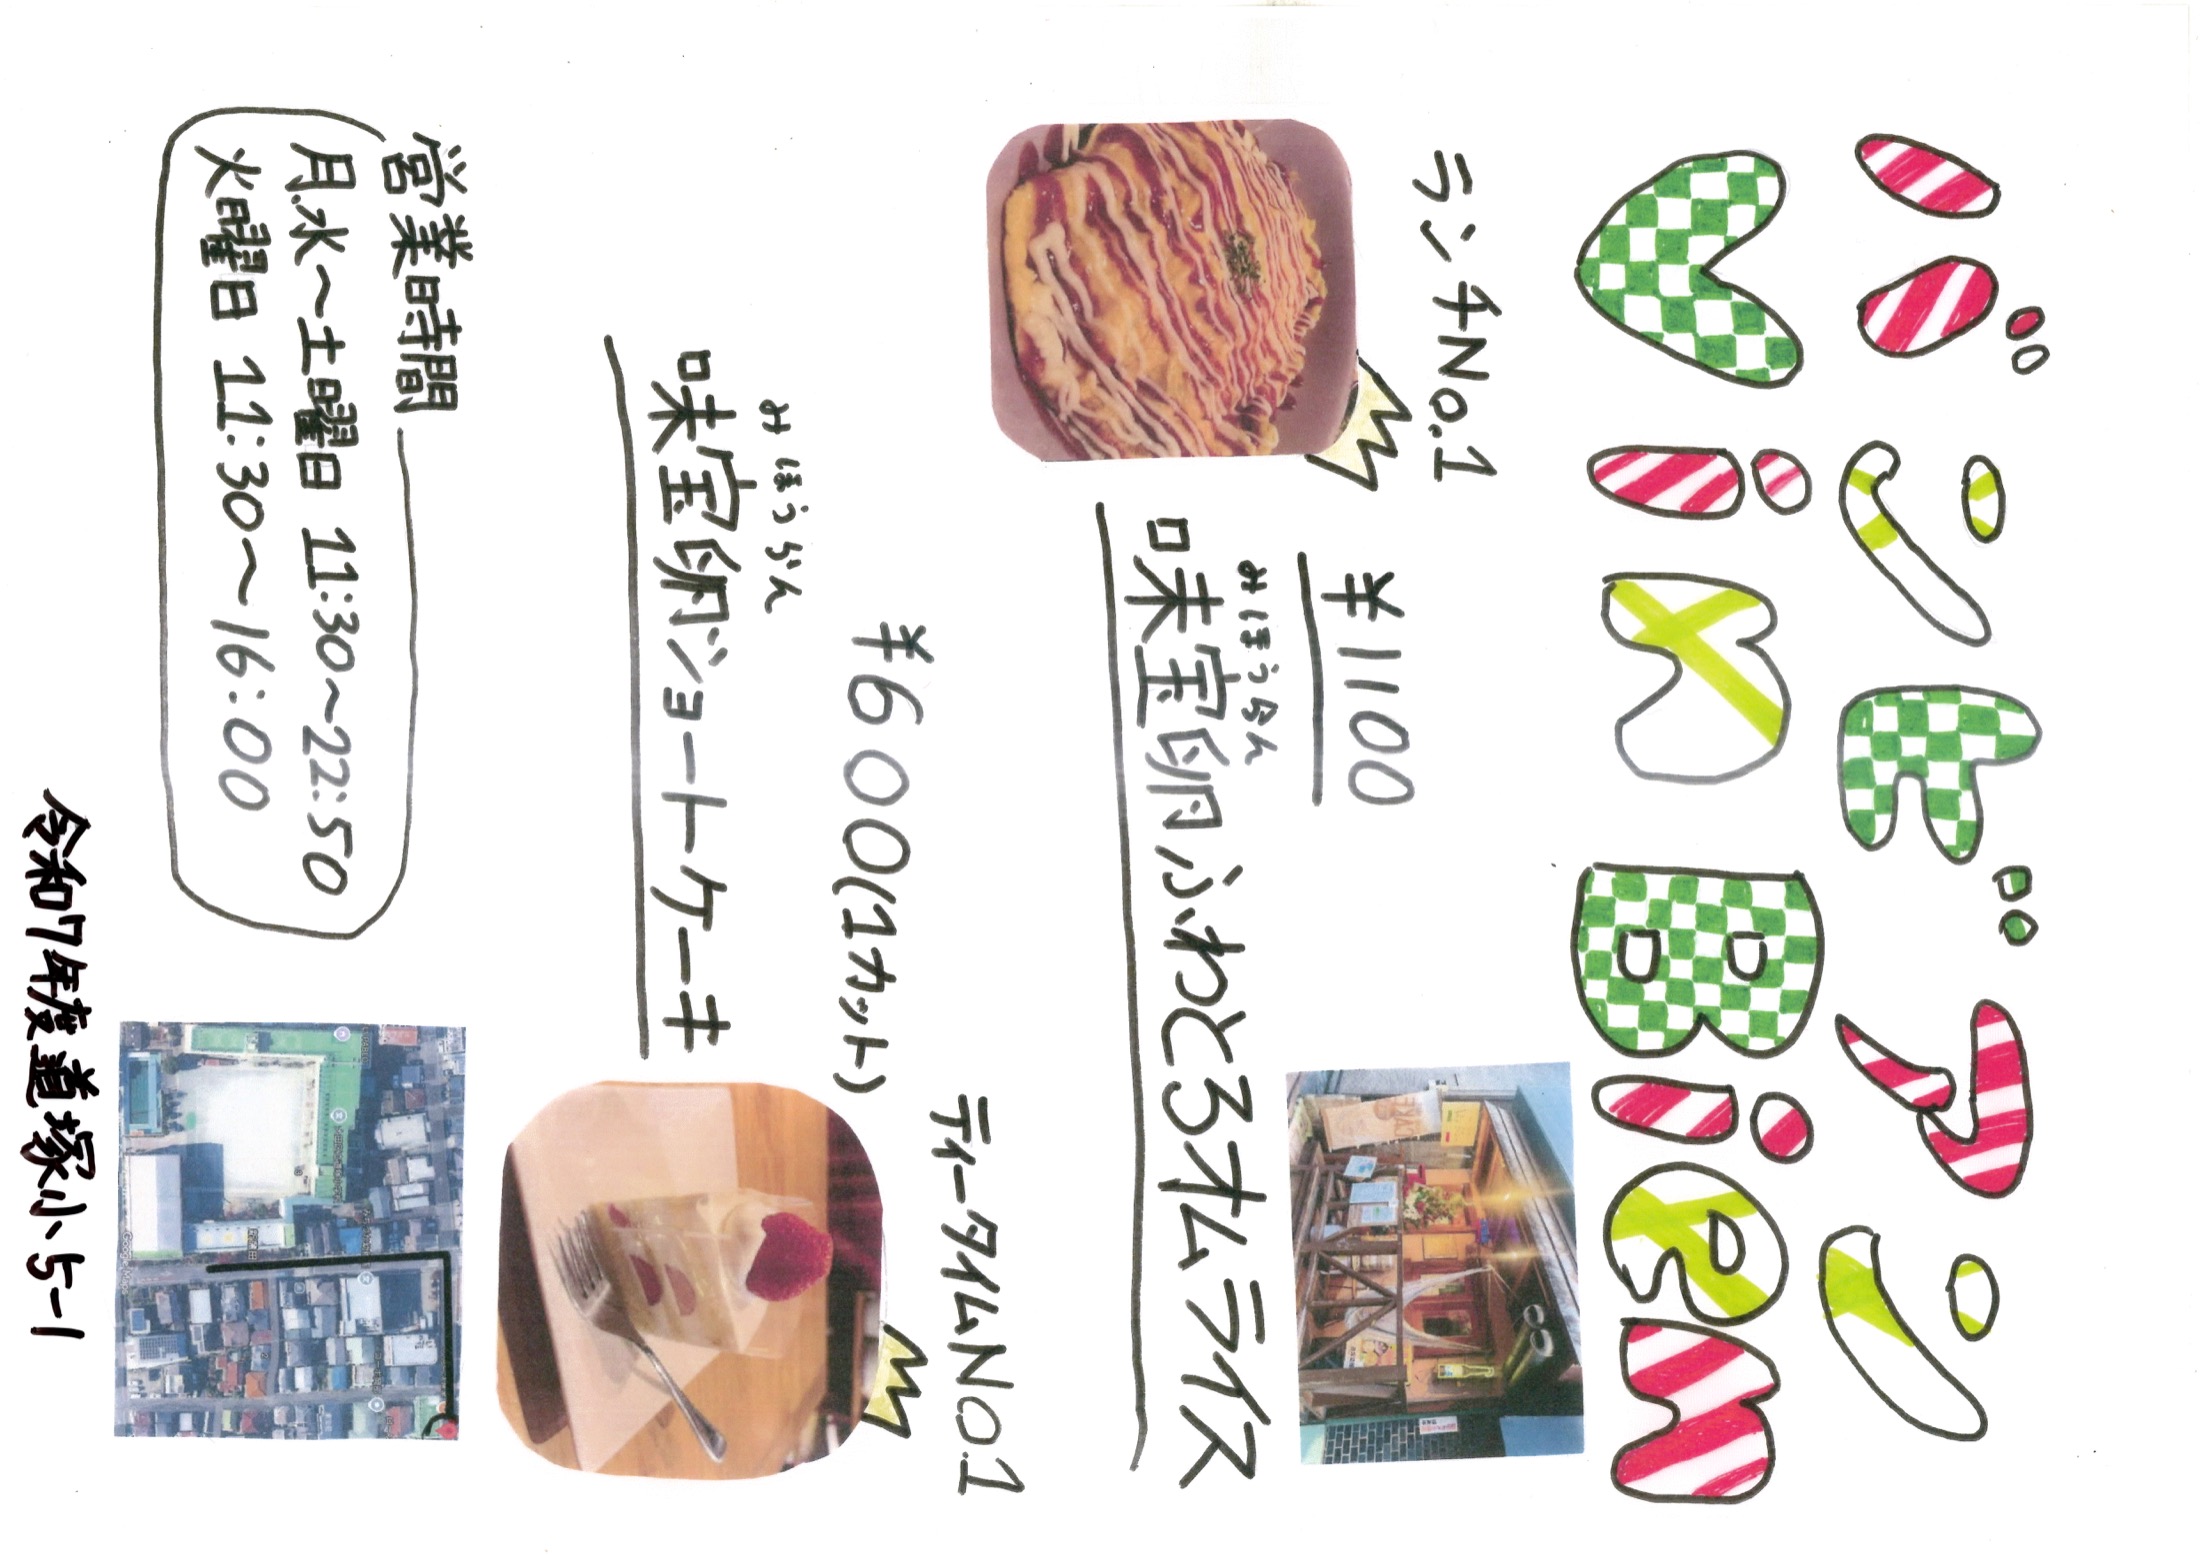 バンビアン
Vin Bien
ランチNo.1
¥1100
みほうらん
味宝卵ふわとろオムライス
ティータイムNo.1
¥600(1カット)
みほうらん
味宝卵ショートケーキ
営業時間
月.水～土曜日 11:30～22:50
火曜日 11:30～16:00
CAKE
Google Maps
令和7年度道塚小5-1